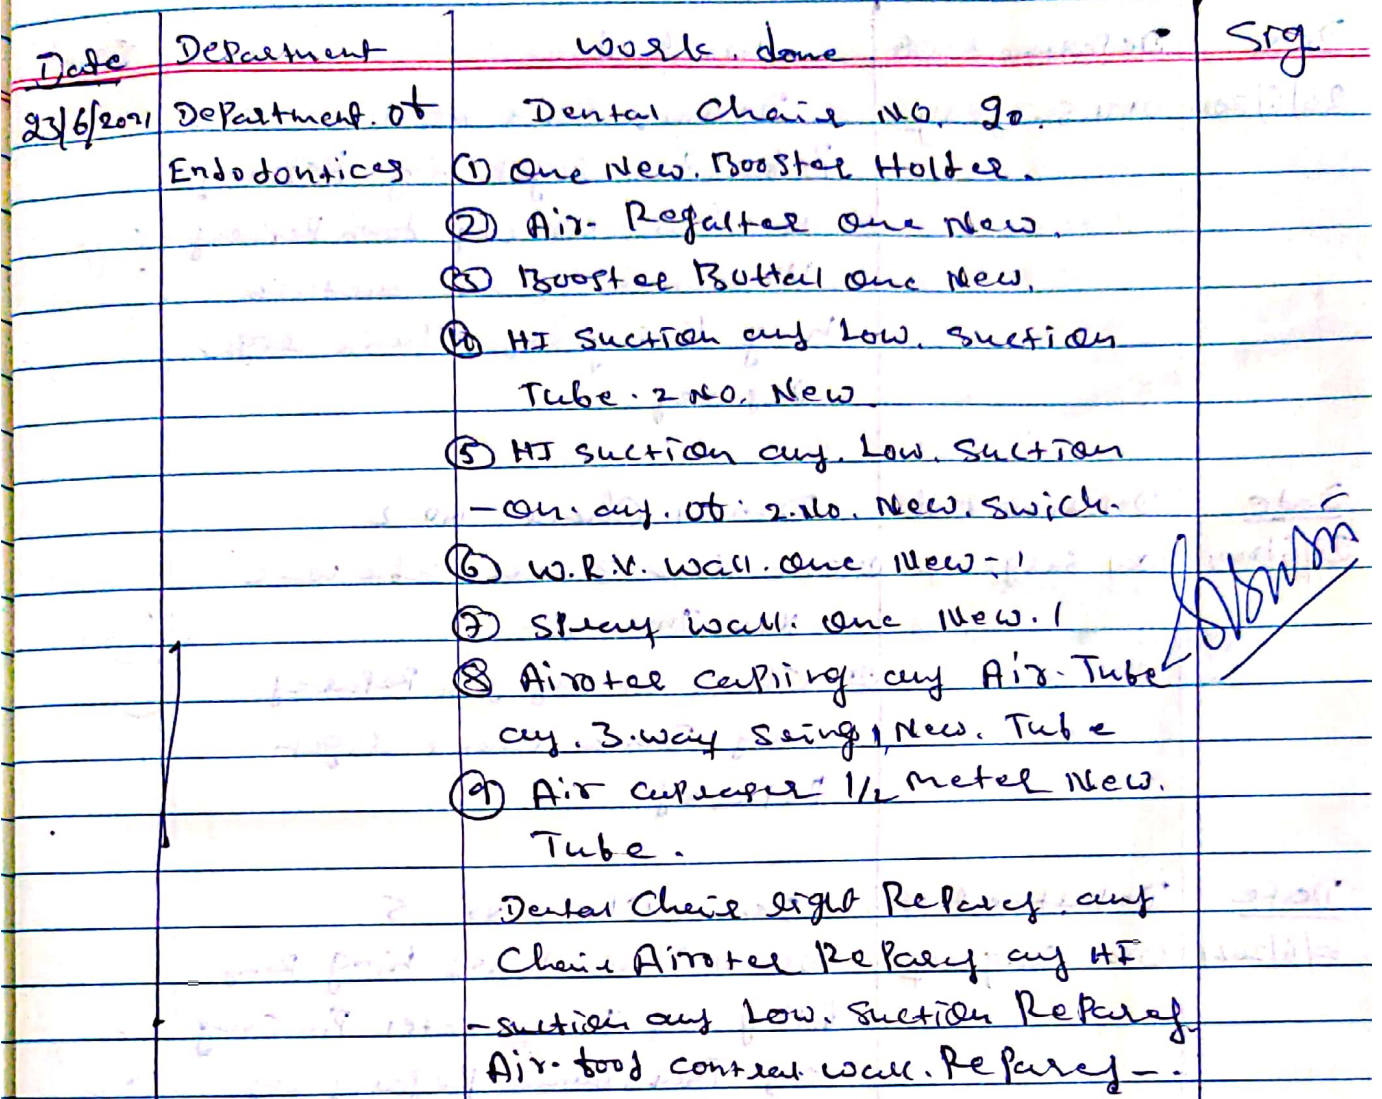 Date Department Work. done. Srg
23/6/2021 Department. of Dental Chair NO. 20.
Endodontices ① One New. Booster Holder.
② Air- Regalter One New.
③ Booster Buttal One New.
④ HI Suction and Low. Suction
Tube. 2 NO. New
⑤ HI Suction and. Low. Suction
-On. and. of. 2.No. New. Swich.
⑥ W.R.V. Wall. One New - 1
⑦ Spray Wall. One New. 1
⑧ Airoter and Air. Tube
and. 3.way 1 New. Tube
⑨ Air 1/2 Meter New.
Tube.
Dental Chair light Reparej. and
Chair Airoter Reparej and HI
-Suction and Low. Suction Reparej
Air. food contral wall. Reparej -.